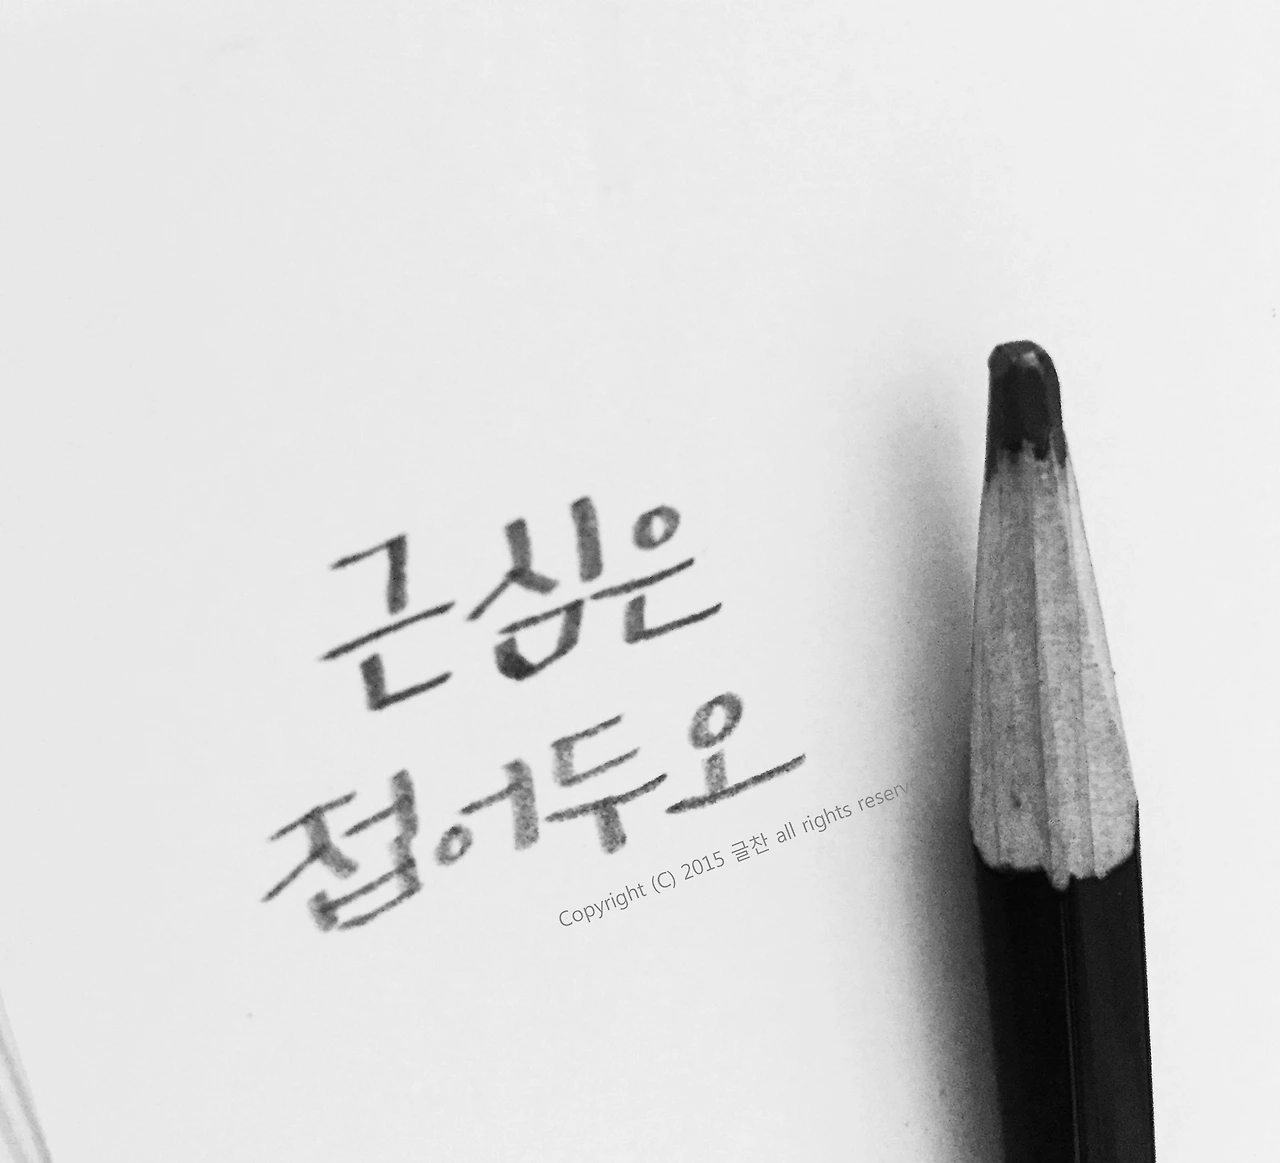 근심은
접어두오
Copyright (C) 2015 글찬 all rights reserv